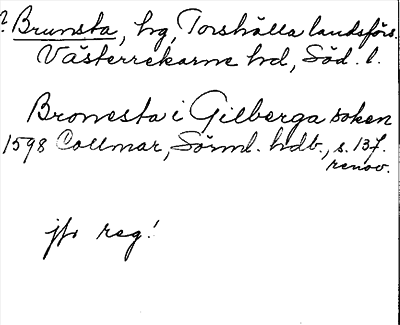 ? Brunsta, hg, Torshälla landsförs.
Västerrekarne hd, Söd. l.
Bronesta i Gilberga soken
1598 Collmar, Sörml. hdb., s. 137.
renov.
jfr reg!